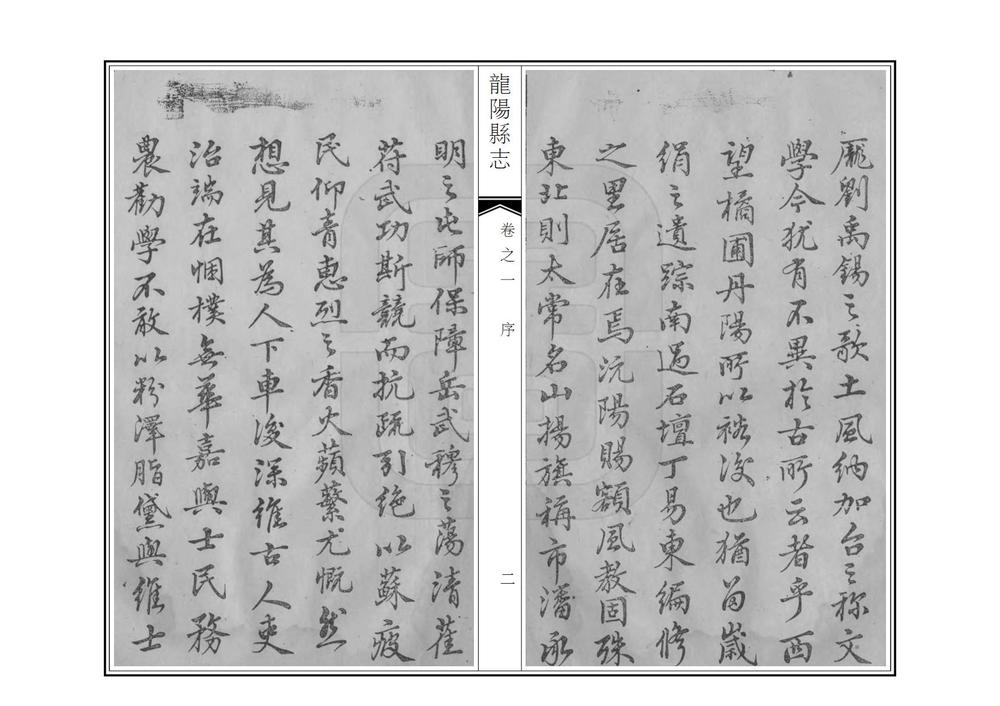 厖劉禹錫之歌土風納加台之称文
學今犹有不異於古所云者乎西
望橘圃丹陽所以裕後也猶留歲
絹之遺踪南過石壇丁易東編修
之里居在焉沅陽賜額風教固殊
東北則太常名山揚旗稱市潘承
龍陽縣志
卷之一 序
二
明之出師保障岳武穆之蕩清萑
苻武功斯競而抗疏引绝以蘇疲
民仰青惠烈之香火蘋蘩尤慨然
想見其為人下車後深維古人吏
治端在悃樸無華嘉與士民務
農勸學不敢以粉澤脂黛與維士